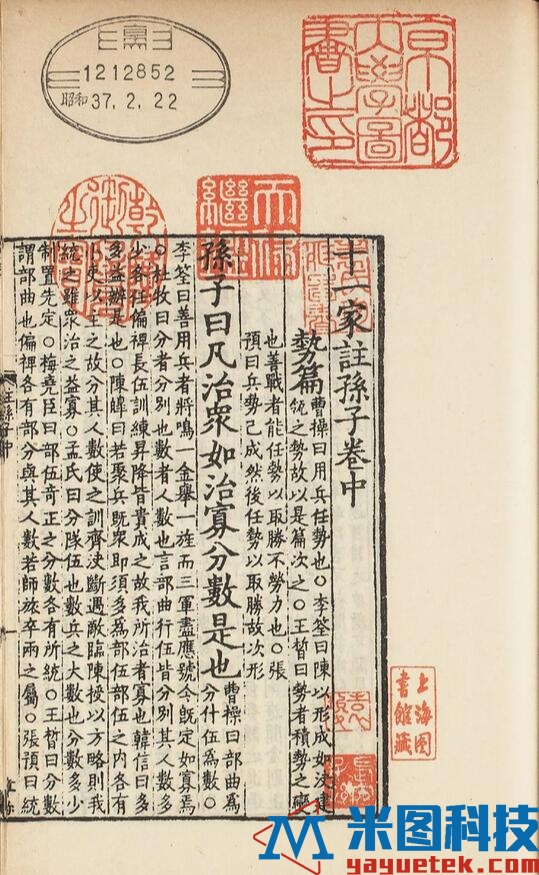 1212852
昭和 37. 2. 22
京都
大學圖
書之印
乾隆御覽之寶
天祿繼鑑
十一家註孫子卷中
勢篇
曹操曰用兵任勢也○李筌曰陳以形成如決建
瓴之勢故以是篇次之○王晳曰勢者積勢之變
也善戰者能任勢以取勝不勞力也○張
預曰兵勢已成然後任勢以取勝故次形
孫子曰凡治衆如治寡分數是也
曹操曰部曲爲
分什伍爲數○
李筌曰善用兵者將鳴一金舉一旌而三軍盡應號令既定如寡焉
○杜牧曰分者分別也數者人數也言部曲行伍皆分別其人數多
少各任偏裨長伍訓練昇降皆責成之故我所治者寡也韓信曰多
多益辦是也○陳皥曰若聚兵既衆即須多爲部伍部伍之内各有
小吏以主之故分其人數使之訓齊決斷遇敵臨陳授以方略則我
統之雖衆治之益寡○孟氏曰分隊伍也數兵之大數也分數多少
制置先定○梅堯臣曰部伍奇正之分數各有所統○王晳曰分數
謂部曲也偏裨各有部分與其人數若師旅卒兩之屬○張預曰統
註孫子中
上海圖
書館藏
米图科技
yayuetek.com